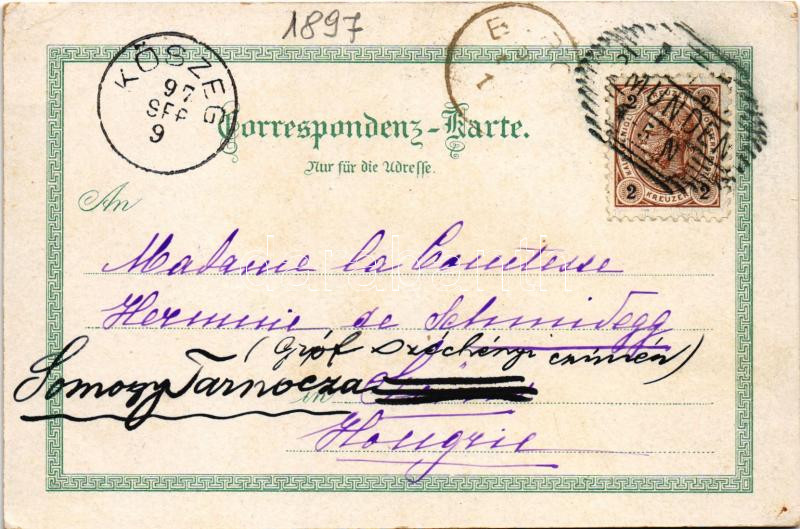 1897
KÖSZEG
97
SEP
9
GMUNDEN
2 2
2 KREUZER 2
Correspondenz-Karte.
Nur für die Adresse.
An
Madame la Comtesse
Hermine de Schmidegg
(Gróf Széchényi czímén)
Somogy Tarnócza in
Hongrie